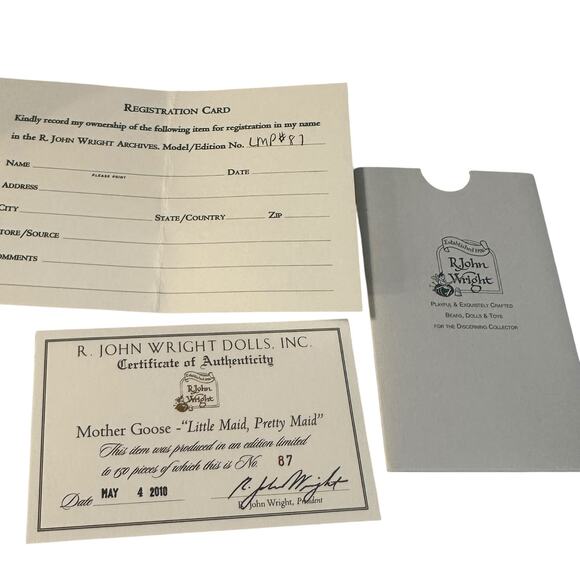 REGISTRATION CARD
Kindly record my ownership of the following item for registration in my name
in the R. JOHN WRIGHT ARCHIVES. Model/Edition No. LMP#87
NAME DATE
PLEASE PRINT
ADDRESS
CITY STATE/COUNTRY ZIP
TORE/SOURCE
OMMENTS
Established 1976
R. John
Wright
PLAYFUL & EXQUISITELY CRAFTED
BEARS, DOLLS & TOYS
FOR THE DISCERNING COLLECTOR
R. JOHN WRIGHT DOLLS, INC.
Certificate of Authenticity
R. John
Wright
Mother Goose -"Little Maid, Pretty Maid"
This item was produced in an edition limited
to 150 pieces of which this is No. 87
Date MAY 4 2010 R. John Wright
R. John Wright, President